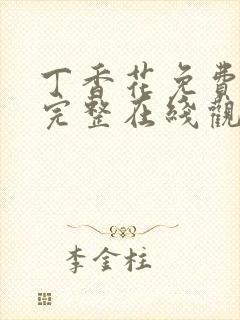 丁香花免費
完整在綫觀
李金柱